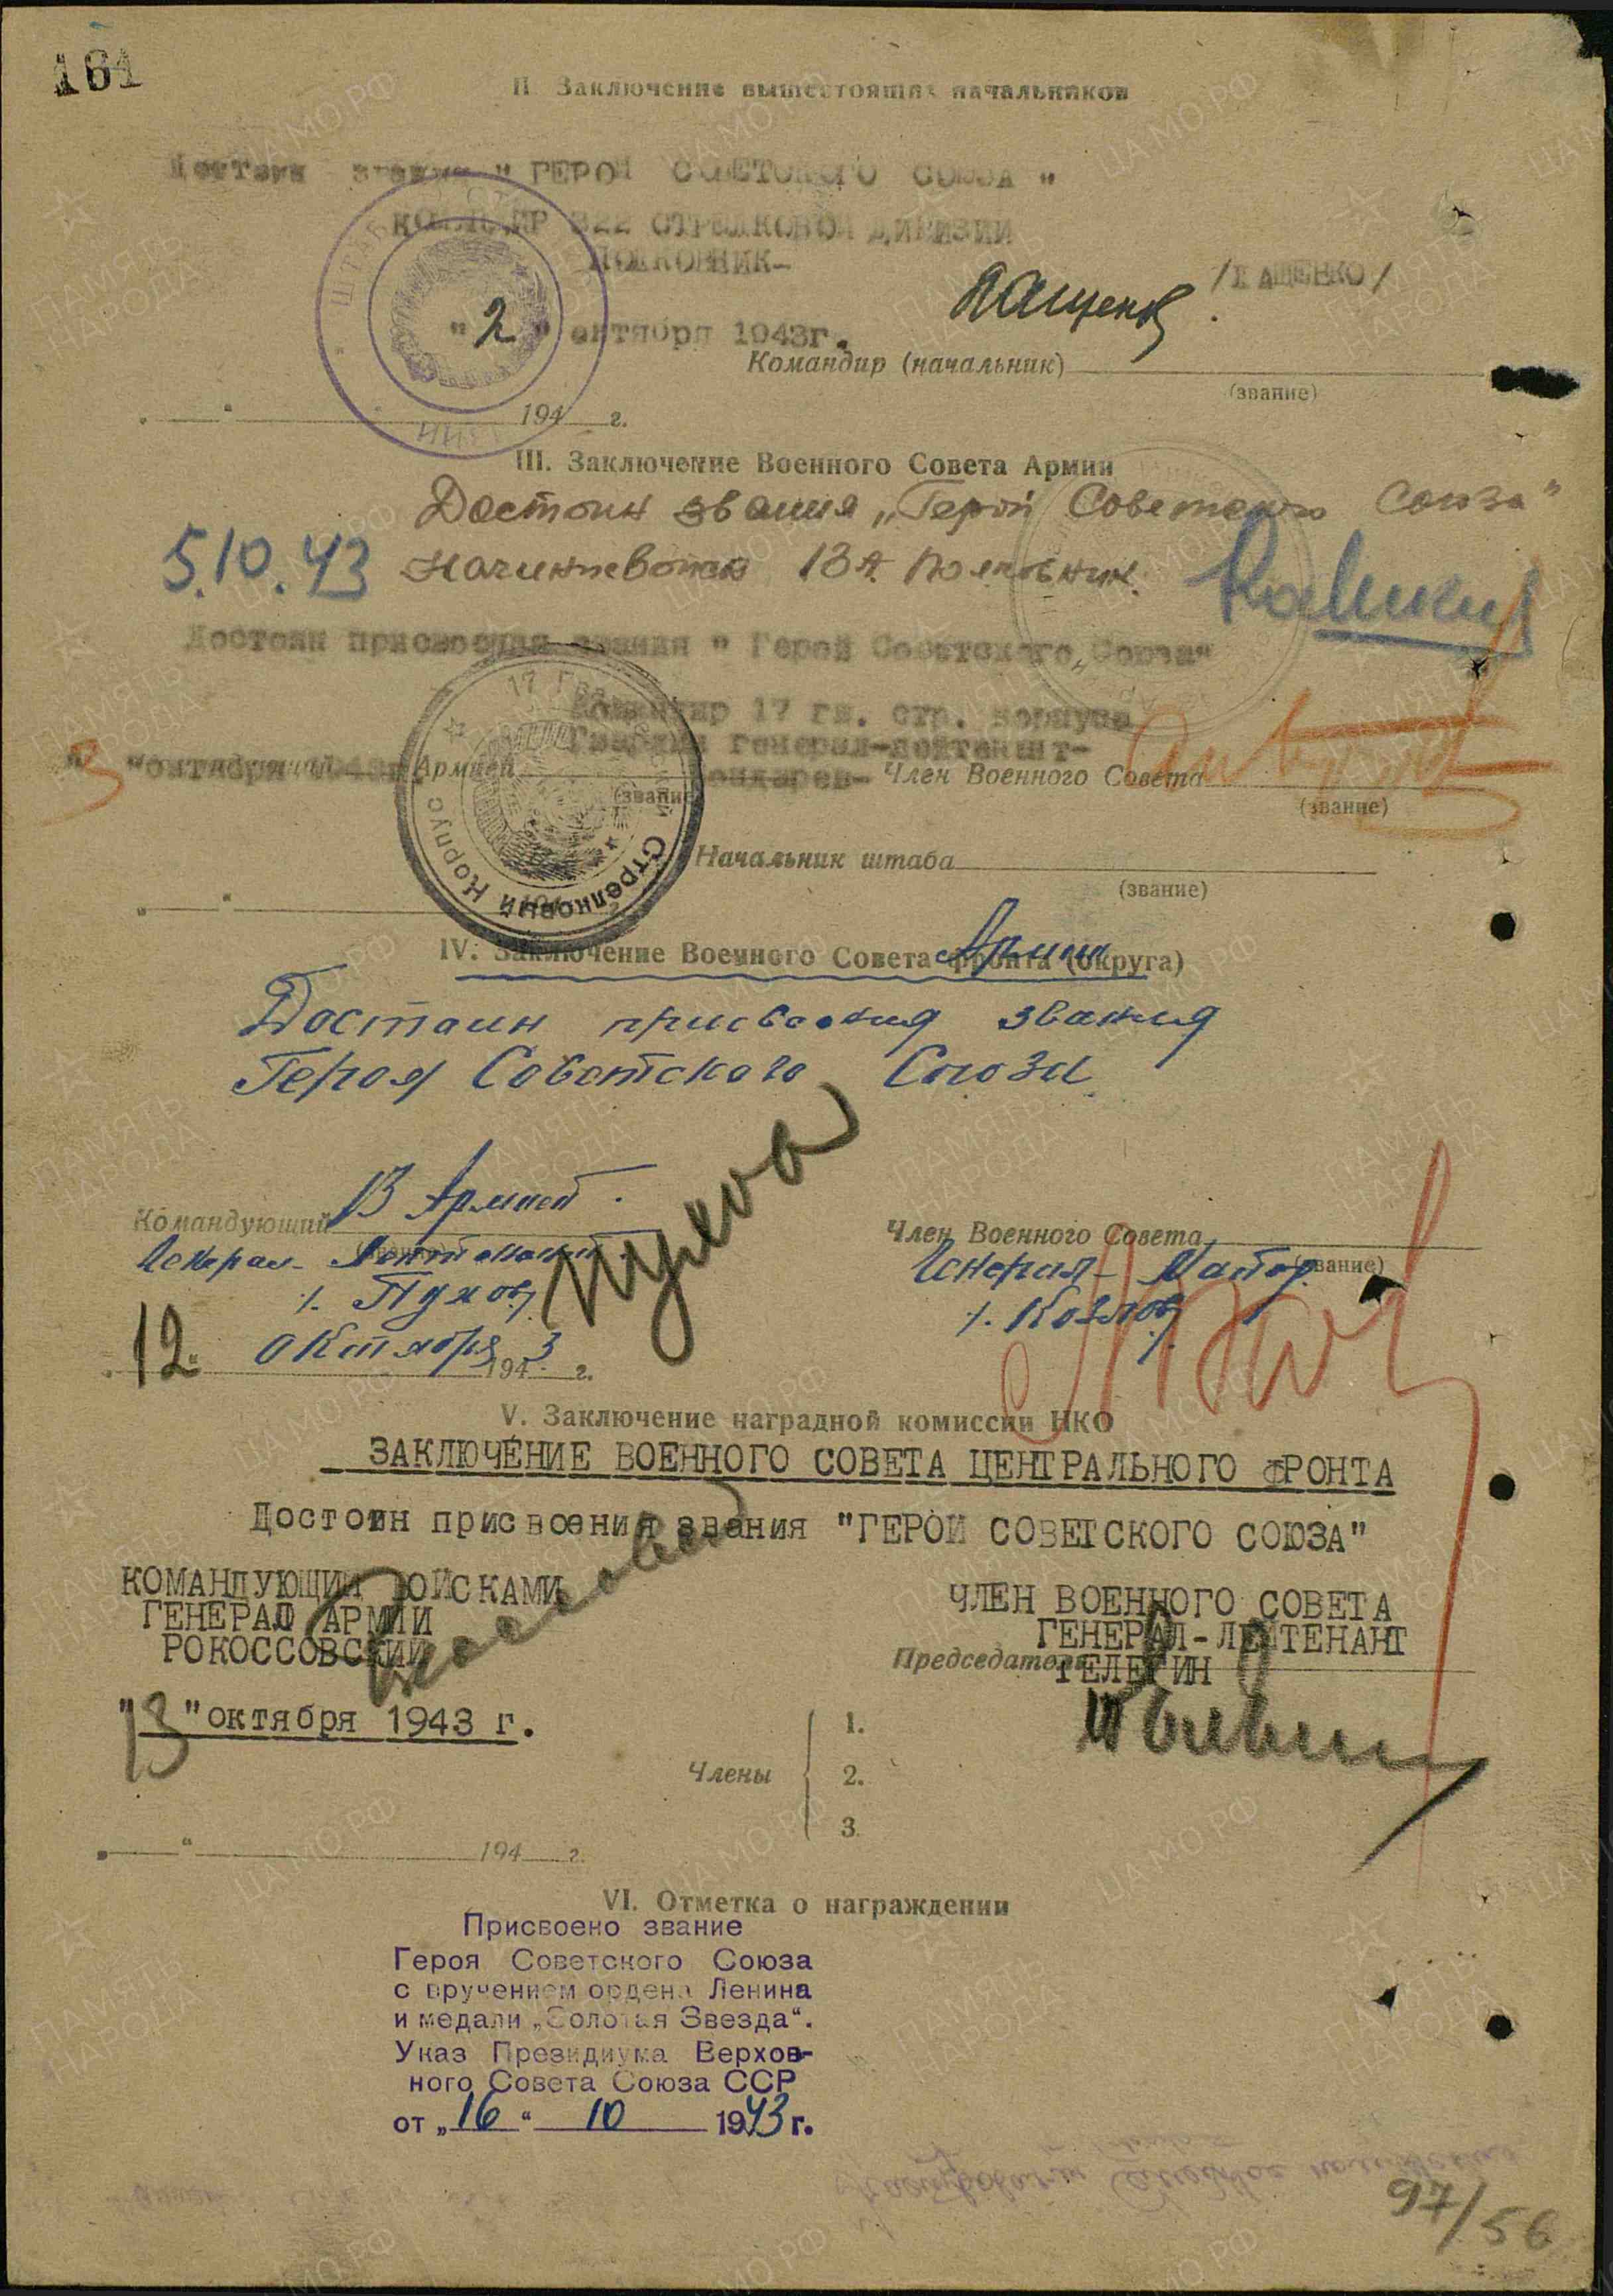 161
II. Заключение вышестоящих начальников
Достоин звания " ГЕРОЙ СОВЕТСКОГО СОЮЗА "
КОМАНДИР 322 СТРЕЛКОВОЙ ДИВИЗИИ
ПОЛКОВНИК-
/ПАЩЕНКО/
"2" октября 1943г.
Командир (начальник)
(звание)
194 г.
III. Заключение Военного Совета Армии
Достоин звания „Герой Советского Союза"
5.10.43 Начинжвойск 13 А полковник
Достоин присвоения звания " Герой Советского Союза"
Командир 17 гв. стр. корпуса
Гвардии генерал-лейтенант-
Бондарев-
"3 "октября 1943г.
Армией
(звание)
17 Гвардейский Стрелковый Корпус
Член Военного Совета
(звание)
Начальник штаба
(звание)
IV. Заключение Военного Совета фронта (округа)
Армии
Достоин присвоения звания
Героя Советского Союза
Командующий 13 Армией
Генерал-Лейтенант
/. Пухов/
12 октября 1943 г.
Член Военного Совета
(звание)
Генерал-Майор
/. Козлов/
V. Заключение наградной комиссии НКО
ЗАКЛЮЧЕНИЕ ВОЕННОГО СОВЕТА ЦЕНТРАЛЬНОГО ФРОНТА
Достоин присвоения звания "ГЕРОЙ СОВЕТСКОГО СОЮЗА"
КОМАНДУЮЩИЙ ВОЙСКАМИ
ГЕНЕРАЛ АРМИИ
РОКОССОВСКИЙ
"13"октября 1943 г.
ЧЛЕН ВОЕННОГО СОВЕТА
ГЕНЕРАЛ-ЛЕЙТЕНАНТ
ТЕЛЕГИН
Председатель
Члены
1.
2.
3.
194 г.
VI. Отметка о награждении
Присвоено звание
Героя Советского Союза
с вручением ордена Ленина
и медали „Золотая Звезда".
Указ Президиума Верхов-
ного Совета Союза ССР
от „16" 10 1943 г.
97/56